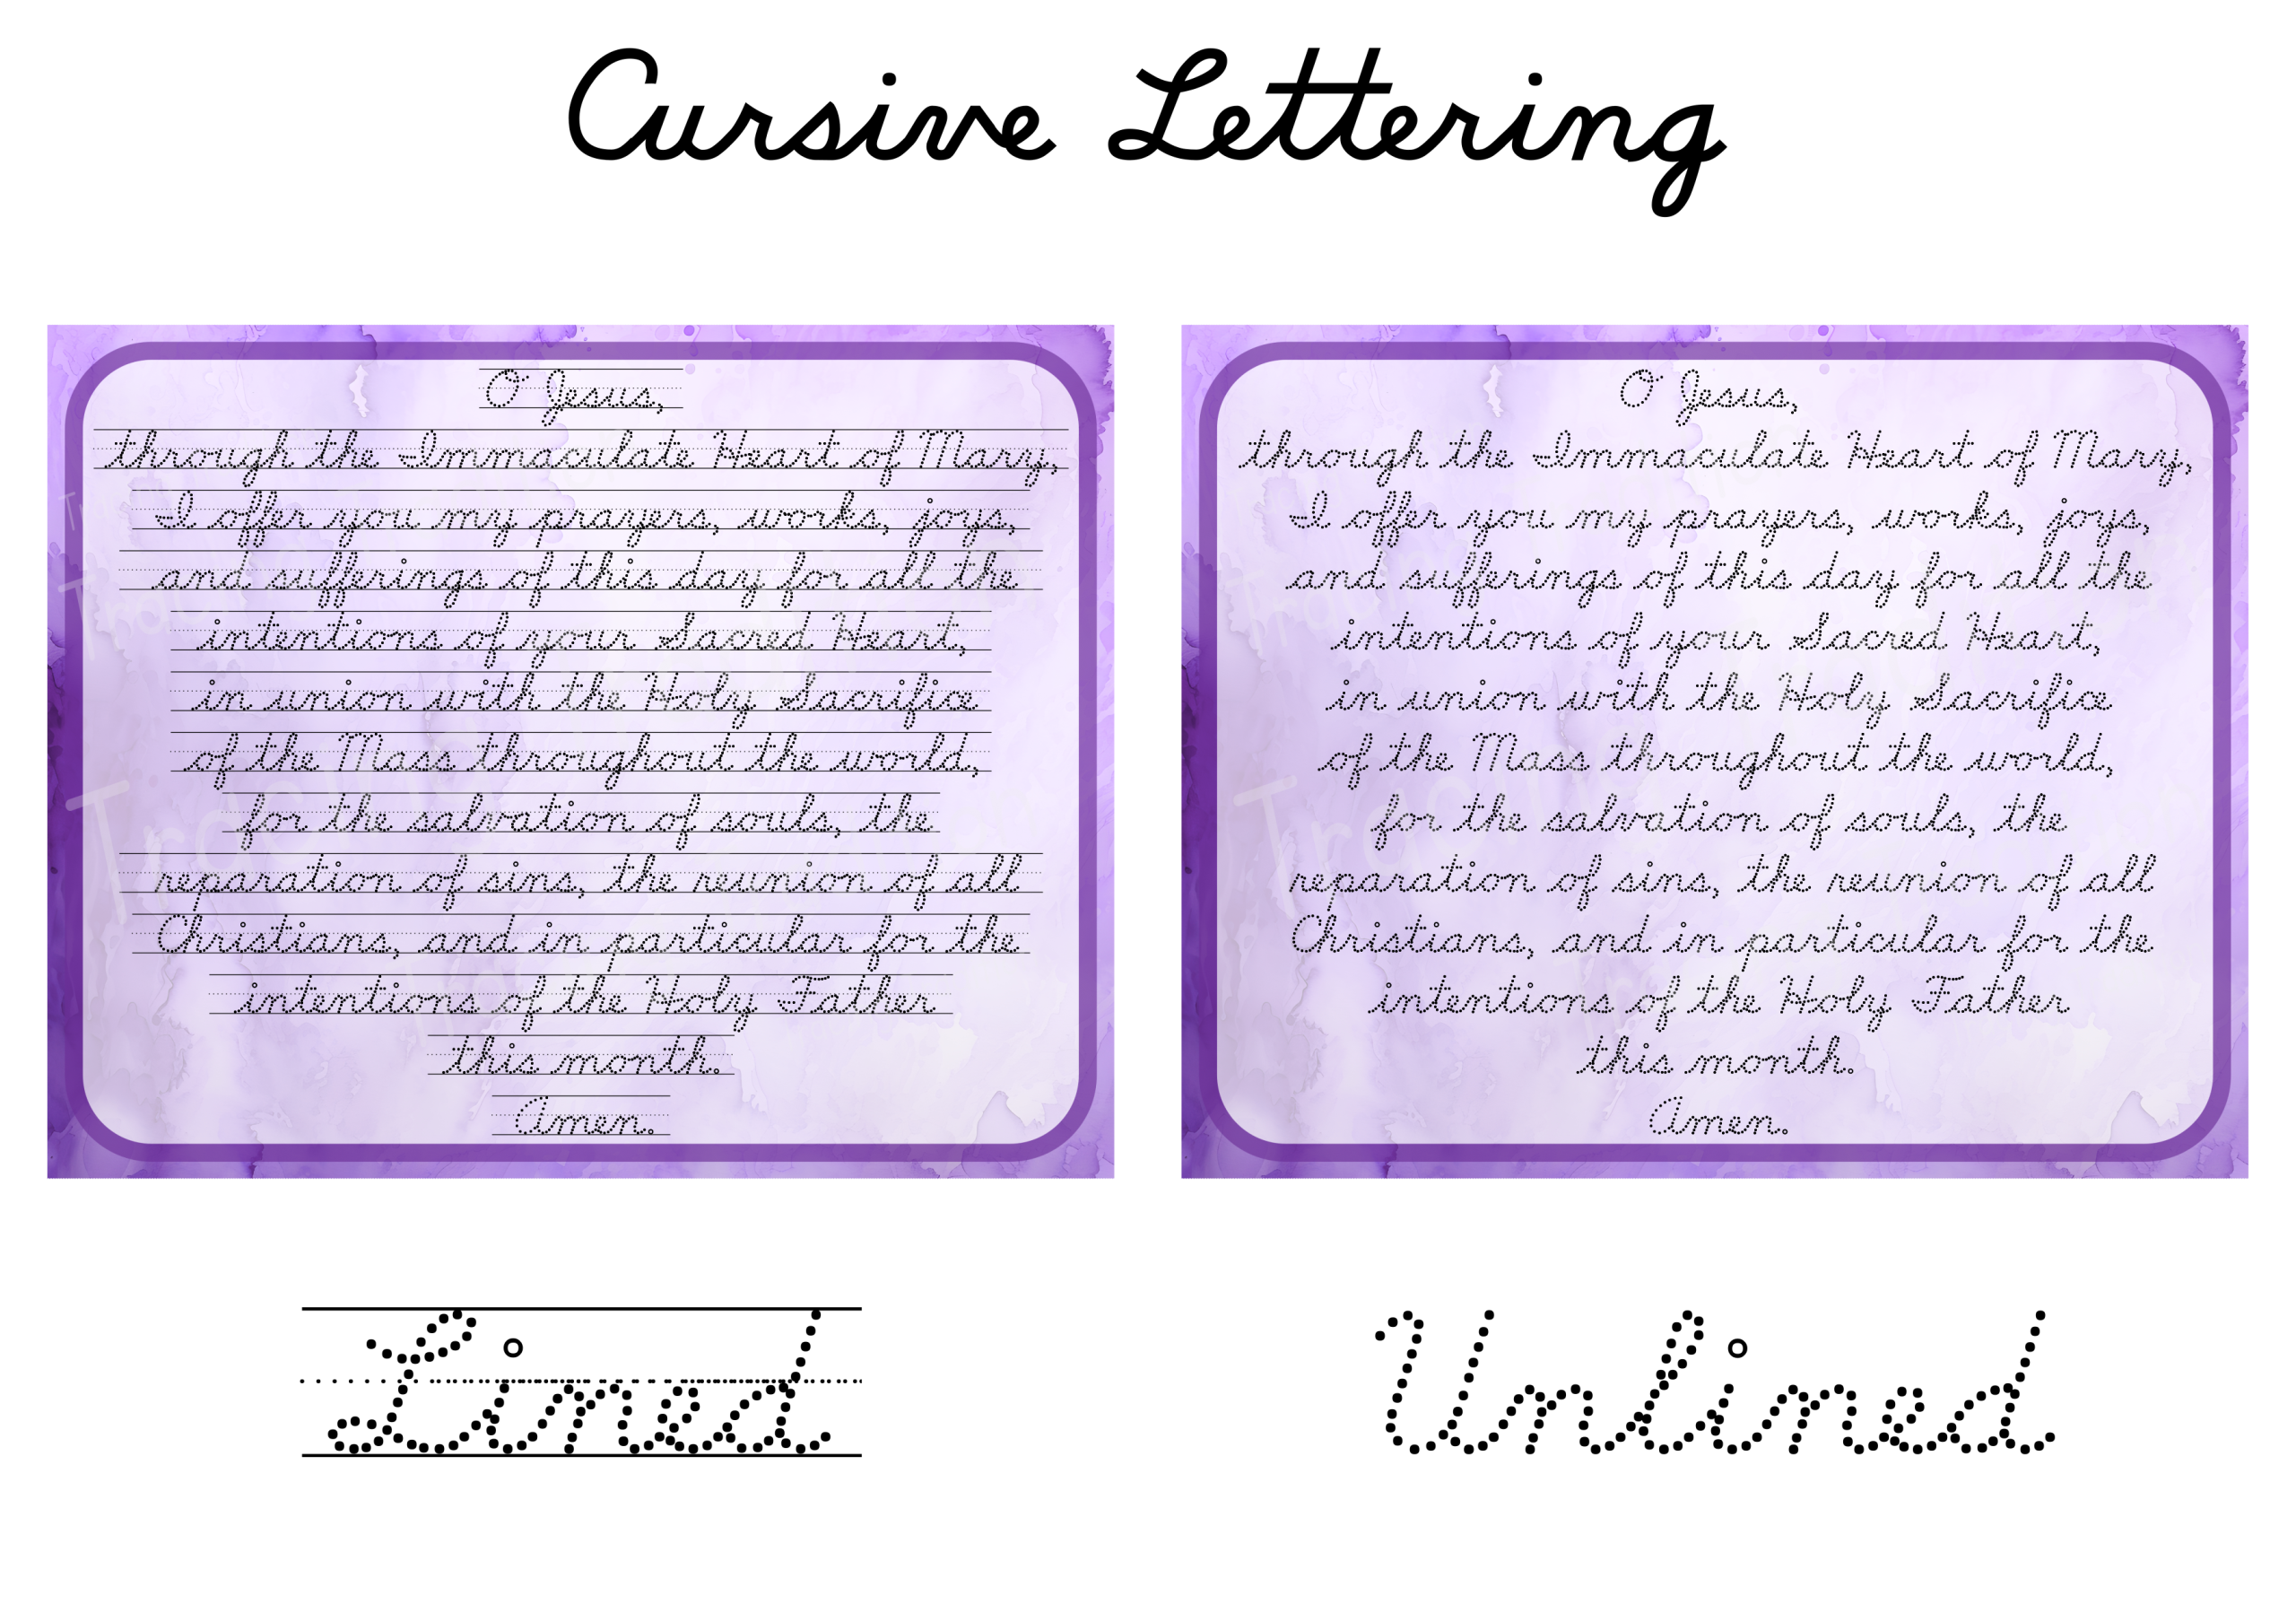 Cursive Lettering
O Jesus,
through the Immaculate Heart of Mary,
I offer you my prayers, works, joys,
and sufferings of this day for all the
intentions of your Sacred Heart,
in union with the Holy Sacrifice
of the Mass throughout the world,
for the salvation of souls, the
reparation of sins, the reunion of all
Christians, and in particular for the
intentions of the Holy Father
this month.
Amen.
O Jesus,
through the Immaculate Heart of Mary,
I offer you my prayers, works, joys,
and sufferings of this day for all the
intentions of your Sacred Heart,
in union with the Holy Sacrifice
of the Mass throughout the world,
for the salvation of souls, the
reparation of sins, the reunion of all
Christians, and in particular for the
intentions of the Holy Father
this month.
Amen.
Lined
Unlined